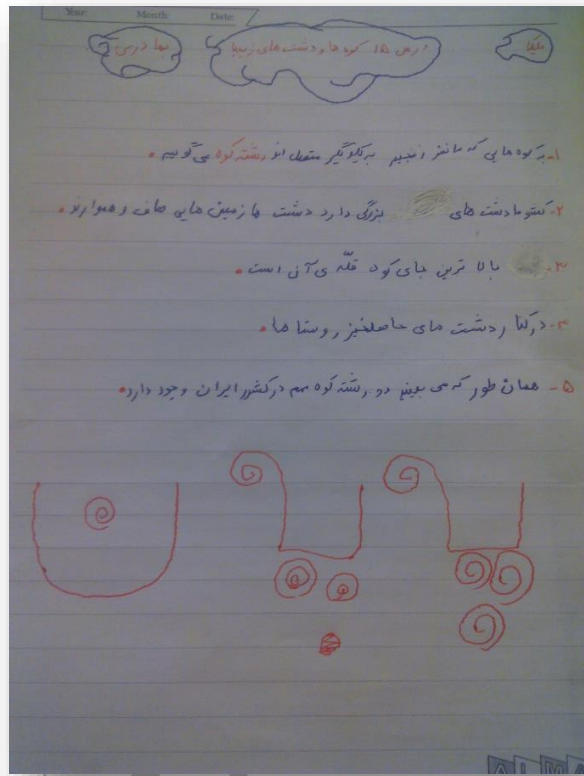 Year: Month: Date:
ملیکا درس ۱۵ کوه ها و دشت های زیبا بها درسی
۱- به کوه هایی که مانند زنجیر به یکدیگر متصل اند رشته کوه می گوییم.
۲- کشور ما دشت های بزرگی دارد دشت ها زمین هایی صاف و هموارند.
۳- بالا ترین جای کوه قلّه ی آن است.
۴- در کنار دشت های حاصلخیز روستا ها.
۵- همان طور که می بینیم دو رشته کوه مهم در کشور ایران وجود دارد.